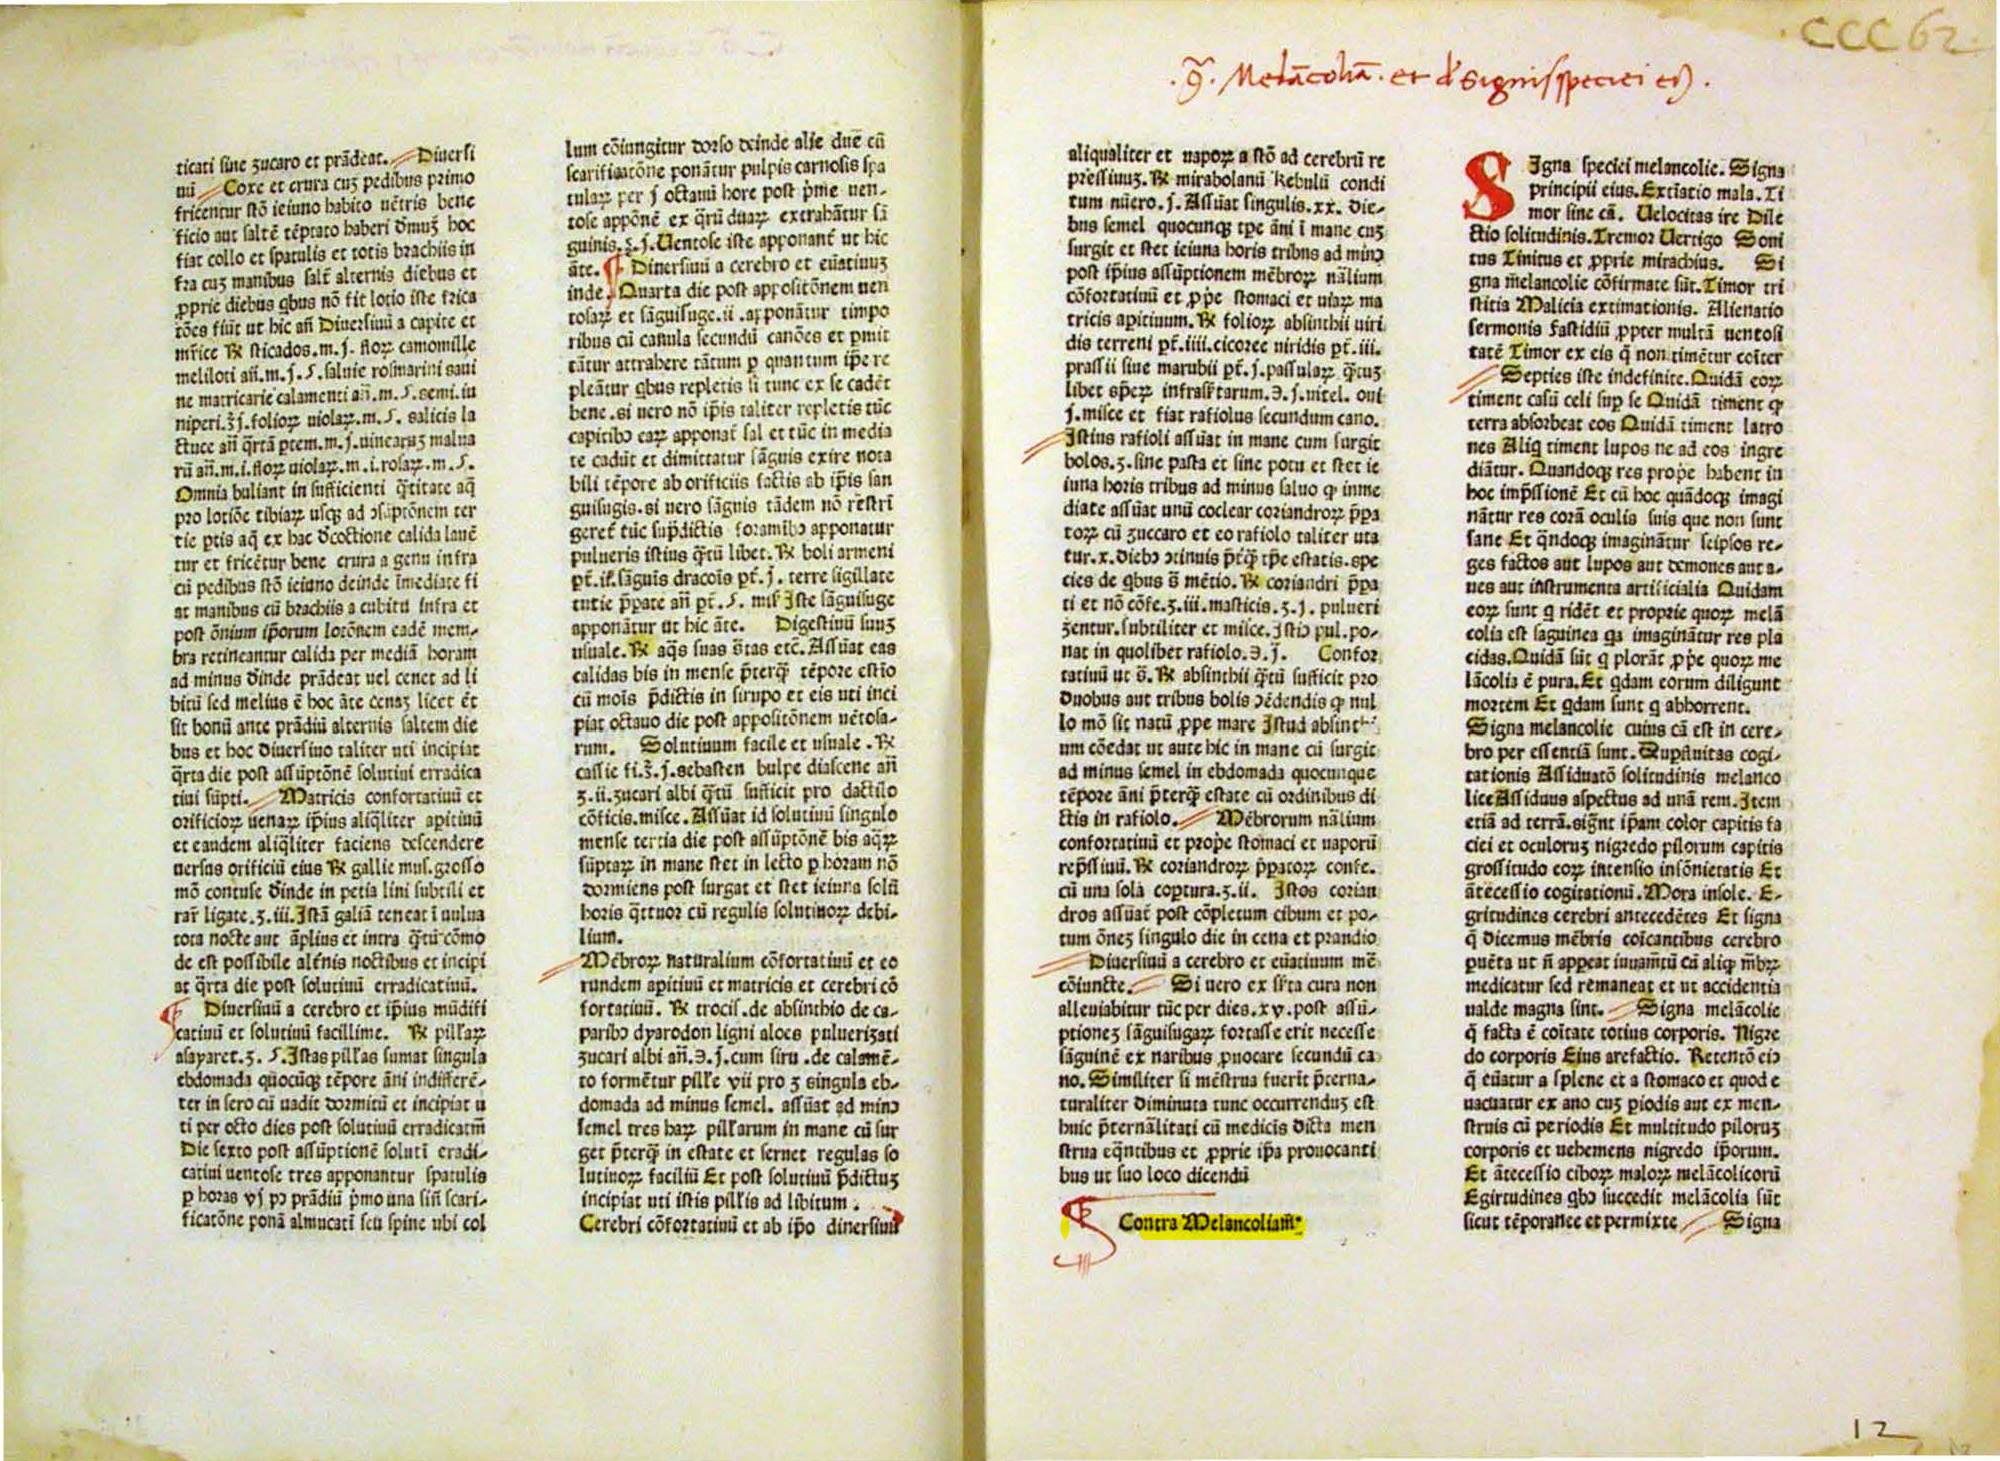 ticati sine zucaro et prādeat. Diuersi
uū Coxe et crura cuʒ pedibus primo
fricentur stō ieiuno habito uētris bene
ficio aut saltē tēptato haberi dōmuʒ hoc
fiat collo et spatulis et totis brachiis in
fra cuʒ manibus salt̄ alternis diebus et
ꝓprie diebus qbus nō fit lotio iste frica
tōes fiūt ut hic an̄ Diuersiuū a capite et
mr̄ice ℞ sticados.m.j. floꝝ camomille
meliloti an̄.m.j.s.saluie rosmarini saui
ne matricarie calamenti an̄.m.s.semi.iu
niperi.ʒ̄j.folioꝝ uiolaꝝ.m.s. salicis la
ctuce an̄ q̄rtā ptem.m.j.uinearuʒ malua
rū an̄.m.i.floꝝ uiolaꝝ.m.i.rosaꝝ.m.s.
Omnia buliant in sufficienti q̄titate aq̄
pro lotiōe tibiaꝝ usqʒ ad ɔsūptōnem ter
tie ptis aq̄ ex hac dcoctione calida lauē
tur et fricētur bene crura a genu infra
cū pedibus stō ieiuno deinde īmediate fi
at manibus cū brachiis a cubitu infra et
post ōnium ip̄orum lotōnem eadē mem-
bra retineantur calida per mediā horam
ad minus d̄inde prādeat uel cenet ad li
bitū sed melius ē hoc āte cenaʒ licet ēt
sit bonū ante prādiū alternis saltem die
bus et hoc diuersiuo taliter uti incipiat
q̄rta die post assūptōnē solutiui erradica
tiui sūpti. Matricis confortatiuū et
orificioꝝ uenaꝝ ip̄ius aliq̄liter apitiuū
et eandem aliq̄liter faciens descendere
uersus orificiū eius ℞ gallie mus.grosso
mō contuse d̄inde in petia lini subtili et
rar̄ ligate.ʒ.iii.Istā galiā teneat ī uulua
tota nocte aut āplius et intra q̄tū cōmo
de est possibile alt̄nis noctibus et incipi
at q̄rta die post solutiuū erradicatiuū.
Diuersiuū a cerebro et ip̄ius mūdifi
catiuū et solutiuū facillime. ℞ pillaꝝ
asayaret.ʒ.s.Istas pillas sumat singula
ebdomada quocūqʒ tēpore āni indifferē-
ter in sero cū uadit dormitū et incipiat u
ti per octo dies post solutiuū erradicatiū
Die sexto post assūptionē soluti eradi-
catiui uentose tres apponantur spatulis
p horas vj pꝰ prādiū pmo una sin̄ scari-
ficatōne ponā almucati seu spine ubi col
lum cōiungitur dorso deinde alie due cū
scarificatōne ponātur pulpis carnosis spa
tulaꝝ per j octauū hore post pm̄e uen-
tose apponē ex q̄rū duaꝝ extrahātur sā
guinis.ʒ̄.j.Uentose iste apponant̄ ut hic
āte. Diuersiuū a cerebro et euatiuuʒ
inde. Quarta die post appositōnem uen
tosaꝝ et sāguisuge.ii.apponātur timpo
ribus cū canula secundū canōes et pmit
tātur attrahere tātum p quantum ip̄e re
pleātur qbus repletis si tunc ex se cadēt
bene.si uero nō ip̄is taliter repletis tūc
capitibꝰ eaꝝ apponat̄ sal et tūc in media
te cadūt et dimittatur sāguis exire nota
bili tēpore ab orificiis factis ab ip̄is san
guisugis.si uero sāguis tādem nō restri
geret̄ tūc sup̄dictis foramibꝰ apponatur
pulueris istius q̄tū libet.℞ boli armeni
pt̄.ii.sāguis dracoīs pt̄.j. terre sigillate
tutie p̄pate an̄ pt̄.s. mis̄ Iste sāguisuge
apponātur ut hic āte. Digestiuū suuʒ
usuale.℞ aq̄s suas s̄tas etc̄.Assūat eas
calidas bis in mense p̄terq̄ tēpore estīo
cū mōis p̄dictis in sirupo et eis uti inci
piat octauo die post appositōnem uētosa-
rum. Solutiuum facile et usuale.℞
cassie fi.ʒ̄.j.sebasten bulpe diascene an̄
ʒ.ii.zucari albi q̄tū sufficit pro dactilo
cōficis.misce.Assūat id solutiuū singulo
mense tertia die post assūptōnē bis aqꝝ
sūptaꝝ in mane stet in lecto p horam nō
dormiens post surgat et stet ieiuna solū
horis q̄ttuor cū regulis solutiuoꝝ debi-
lium.
Mēbroꝝ naturalium cōfortatiuū et eo
rundem apitiuū et matricis et cerebri cō
fortatiuū. ℞ trocis.de absinthio de ca-
paribꝰ dyarodon ligni aloes puluerizati
zucari albi an̄.Ə.j.cum siru.de calamē-
to formētur pille vii pro ʒ singula eb-
domada ad minus semel. assūat ad minꝰ
semel tres haꝝ pillarum in mane cū sur
get p̄terq̄ in estate et seruet regulas so
lutiuoꝝ faciliū Et post solutiuū p̄dictuʒ
incipiat uti istis pillis ad libitum.
Cerebri cōfortatiuū et ab ip̄o diuersiuū
CCC 62
.9̄. Melācoliā. et d̄ signis speciei eiꝰ.
aliqualiter et uapoꝝ a stō ad cerebrū re
pressiuuʒ.℞ mirabolanū kebulū condi
tum nūero.j.Assūat singulis.xx.die-
bus semel quocunqʒ tp̄e āni i mane cuʒ
surgit et stet ieiuna horis tribus ad minꝰ
post ip̄ius assūptionem mēbroꝝ nālium
cōfortatiuū et ꝓpe stomaci et uiaꝝ ma
tricis apitiuum.℞ folioꝝ absinthii uiri
dis terreni pt̄.iiii.cicoree uiridis pt̄.iii.
prassii siue marubii pt̄.j.passulaꝝ q̄tuʒ
libet sp̄eꝝ infras̄tarum.Ə.j.uitel. oui
j.misce et fiat rafiolus secundum cano.
Istius rafioli assūat in mane cum surgit
bolos.ʒ.sine pasta et sine potu et stet ie
iuna horis tribus ad minus saluo q̄ inme
diate assūat unū coclear coriandroꝝ p̄pa
toꝝ cū zuccaro et eo rafiolo taliter uta
tur.x.diebꝰ ɔtinuis p̄tq̄ tp̄e estatis.spe
cies de qbus s̄ mētio.℞ coriandri p̄pa
ti et nō cōfe.ʒ.iii.masticis.ʒ.j. pulueri
zentur.subtiliter et misce.Istiꝰ pul.po-
nat in quolibet rafiolo.Ə.j. Confor
tatiuū ut s̄.℞ absinthii q̄tū sufficit pro
duobus aut tribus bolis ɔedendis q̄ nul
lo mō sit natū ꝓpe mare Istud absinthi
um cōedat ut ante hic in mane cū surgit
ad minus semel in ebdomada quocunque
tēpore āni p̄terq̄ estate cū ordinibus di
ctis in rafiolo. Mēbrorum nālium
confortatiuū et prope stomaci et uaporū
rep̄ssiuū.℞ coriandroꝝ p̄patoꝝ confe.
cū una sola coptura.ʒ.ii. Istos corian
dros assūat̄ post cōpletum cibum et po-
tum ōneʒ singulo die in cena et prandio
Diuersiuū a cerebro et euatiuum mē
cōiuncte. Si uero ex s̄ta cura non
alleuiabitur tūc per dies.xv.post assū-
ptioneʒ sāguisugaꝝ fortasse erit necesse
sāguinē ex naribus ꝓuocare secundū ca
no. Similiter si mēstrua fuerīt p̄terna-
turaliter diminuta tunc occurrenduʒ est
huic p̄ternālitati cū medicis dicta men
strua eq̄ntibus et ꝓprie ip̄a prouocanti
bus ut suo loco dicendū
Contra Melancoliam̄
SIgna speciei melancolie. Signa
principii eius.Extīatio mala.Ti
mor sine cā. Uelocitas ire Dile
ctio solitudinis.Tremor Uertigo Soni
tus Tinitus et ꝓprie mirachius. Si
gna mēlancolie cōfirmate sūt.Timor tri
stitia Malicia extimationis. Alienatio
sermonis Fastidiū ꝓpter multā uentosi
tatē Timor ex eis q̄ non timētur cōiter
Septies iste indefinite.Quidā eoꝝ
timent casū celi sup se Quidā timent q̄
terra absorbeat eos Quidā timent latro
nes Aliq̄ timent lupos ne ad eos ingre
diātur. Quandoqʒ res prope habent in
hoc imp̄ssionē Et cū hoc quādoqʒ imagi
nātur res corā oculis suis que non sunt
sane Et q̄ndoqʒ imaginātur seipsos re-
ges factos aut lupos aut demones aut a-
ues aut instrumenta artificialia Quidam
eoꝝ sunt q ridēt et proprie quoꝝ melā
colia est sāguinea qa imaginātur res pla
cidas.Quidā sūt q plorāt ꝓpe quoꝝ me
lācolia ē pura.Et qdam eorum diligunt
mortem Et qdam sunt q abhorrent.
Signa melancolie cuius cā est in cere-
bro per essentiā sunt. Supfluitas cogi-
tationis Assiduatō solitudinis melanco
lice Assiduus aspectus ad unā rem.Item
etiā ad terrā.sign̄t ip̄am color capitis fa
ciei et oculoruʒ nigredo pilorum capitis
grossitudo eoꝝ intensio insōnietatis Et
ātecessio cogitationū.Mora in sole. E-
gritudines cerebri antecedētes Et signa
q̄ dicemus mēbris coīcantibus cerebro
puēta ut n̄ appeat iuuamtū cū aliq̄ mb̄ꝝ
medicatur sed remaneat et ut accidentia
ualde magna sint. Signa melācolie
q̄ facta ē cōitate totius corporis. Nigre
do corporis Eius arefactio. Retentō eiꝰ
q̄ euatur a splene et a stomaco et quod e
uacuatur ex ano cuʒ piodis aut ex men-
struis cū periodis Et multitudo piloruʒ
corporis et uehemens nigredo ip̄orum.
Et ātecessio ciboꝝ maloꝝ melācolicorū
Egirtudines qbꝰ succedit melācolia sūt
sicut tēporance et permixte Signa
12